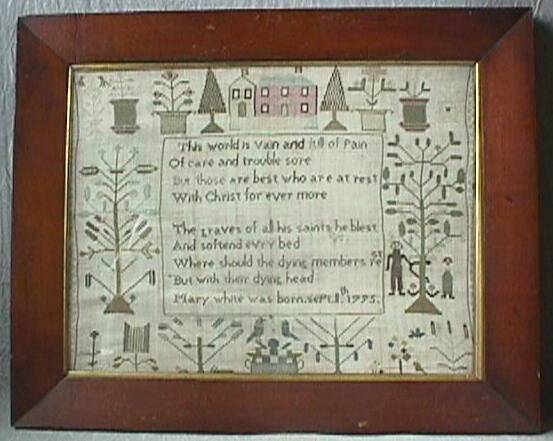 This world is Vain and full of Pain
Of care and trouble sore
But those are best who are at rest
With Christ for ever more
The graves of all his saints he blest
And softend evry bed
Where should the dying members rest
But with their dying head
Mary white was born. sept. 11th 1775.